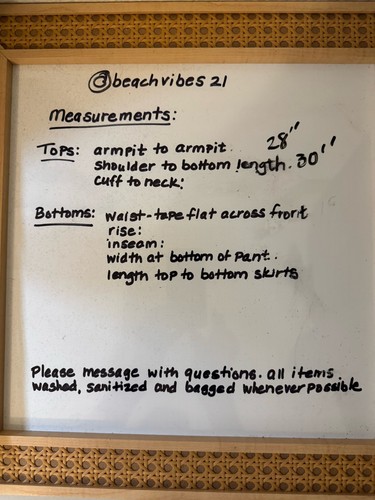 @beachvibes 21
Measurements:
Tops: armpit to armpit. 28"
shoulder to bottom length. 30"
cuff to neck:
Bottoms: waist-tape flat across front
rise:
inseam:
width at bottom of pant.
length top to bottom skirts
Please message with questions. all items
washed, sanitized and bagged whenever possible